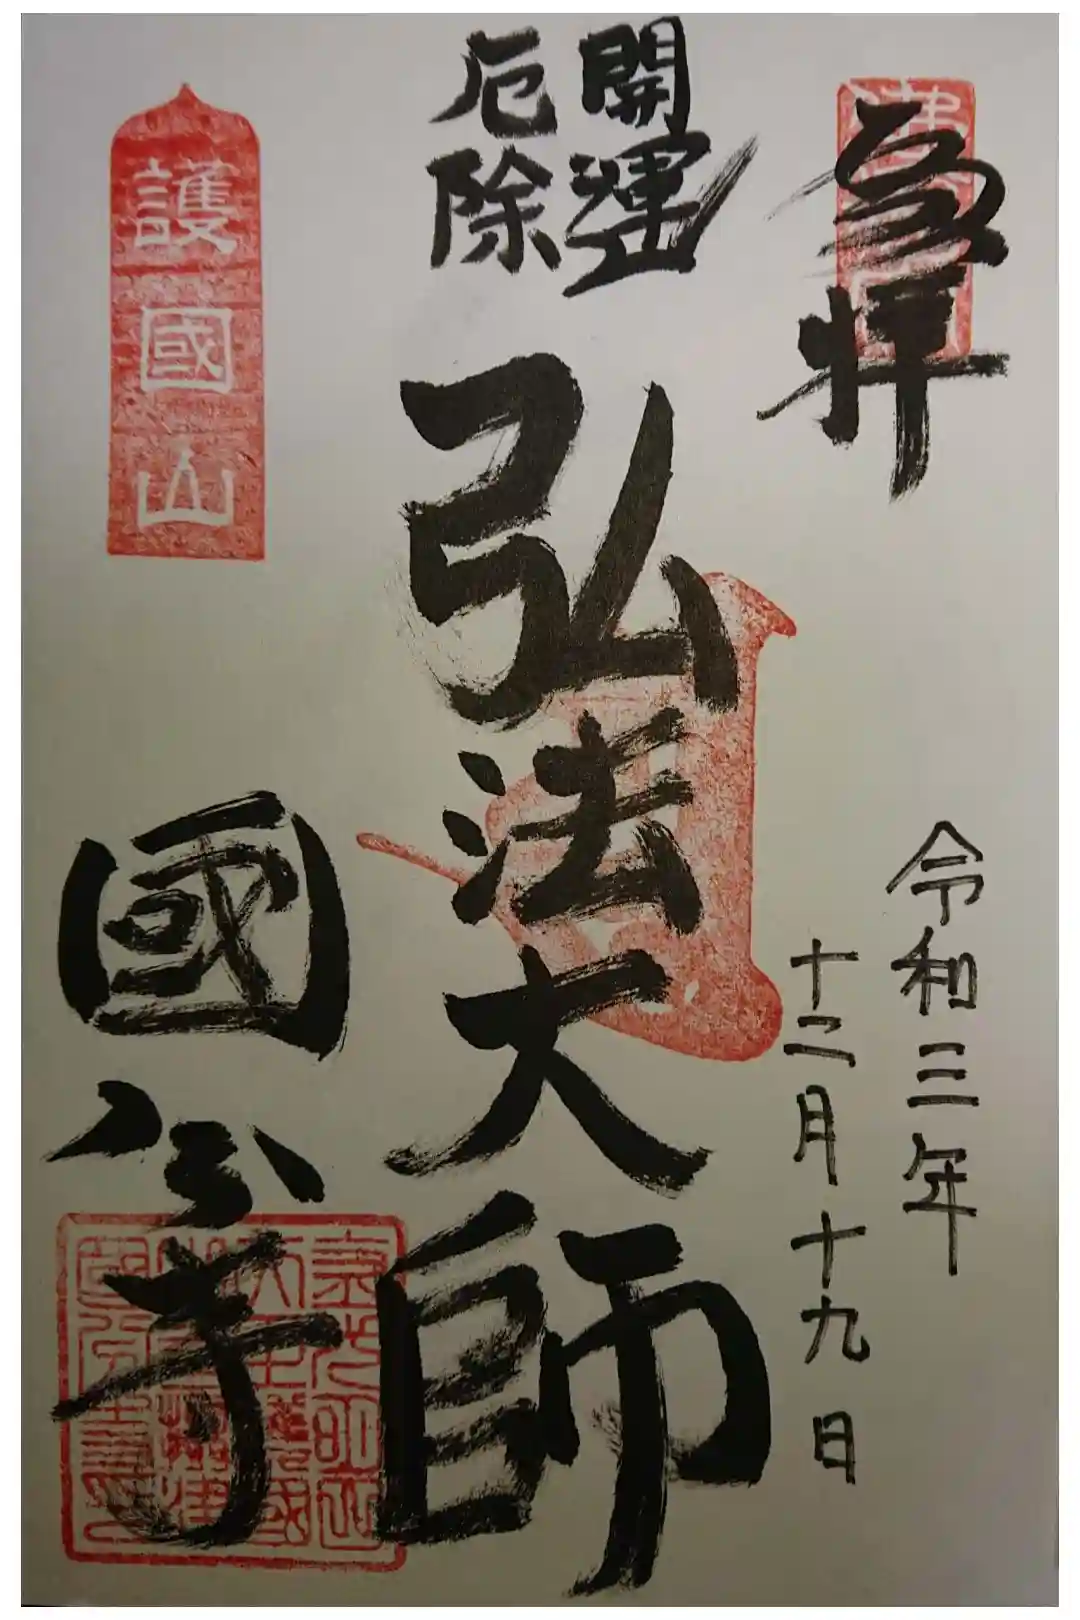 奉拝
令和三年
十二月十九日
開運
厄除
弘法大師
護國山
國分寺